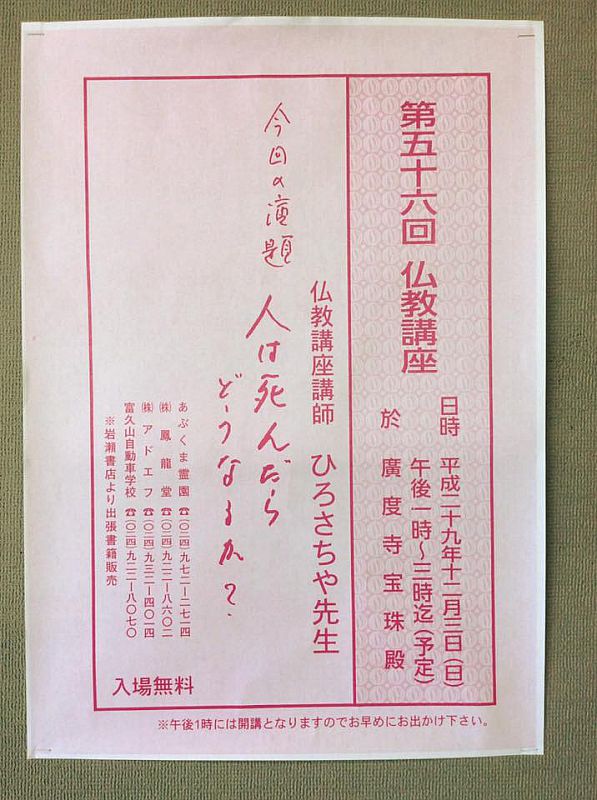 第五十六回 仏教講座
日時 平成二十九年十二月三日(日)
午後一時～三時迄(予定)
於 廣度寺宝珠殿
仏教講座講師 ひろさちや先生
今回の演題
人は死んだら
どうなるか?
あぶくま霊園 ☎(〇二四)九七二-二七一四
㈱鳳龍堂 ☎(〇二四)九二二-八六〇二
㈱アドエフ ☎(〇二四)九三二-四〇一四
富久山自動車学校 ☎(〇二四)九二二-八〇七〇
※岩瀬書店より出張書籍販売
入場無料
※午後1時には開講となりますのでお早めにお出かけ下さい。